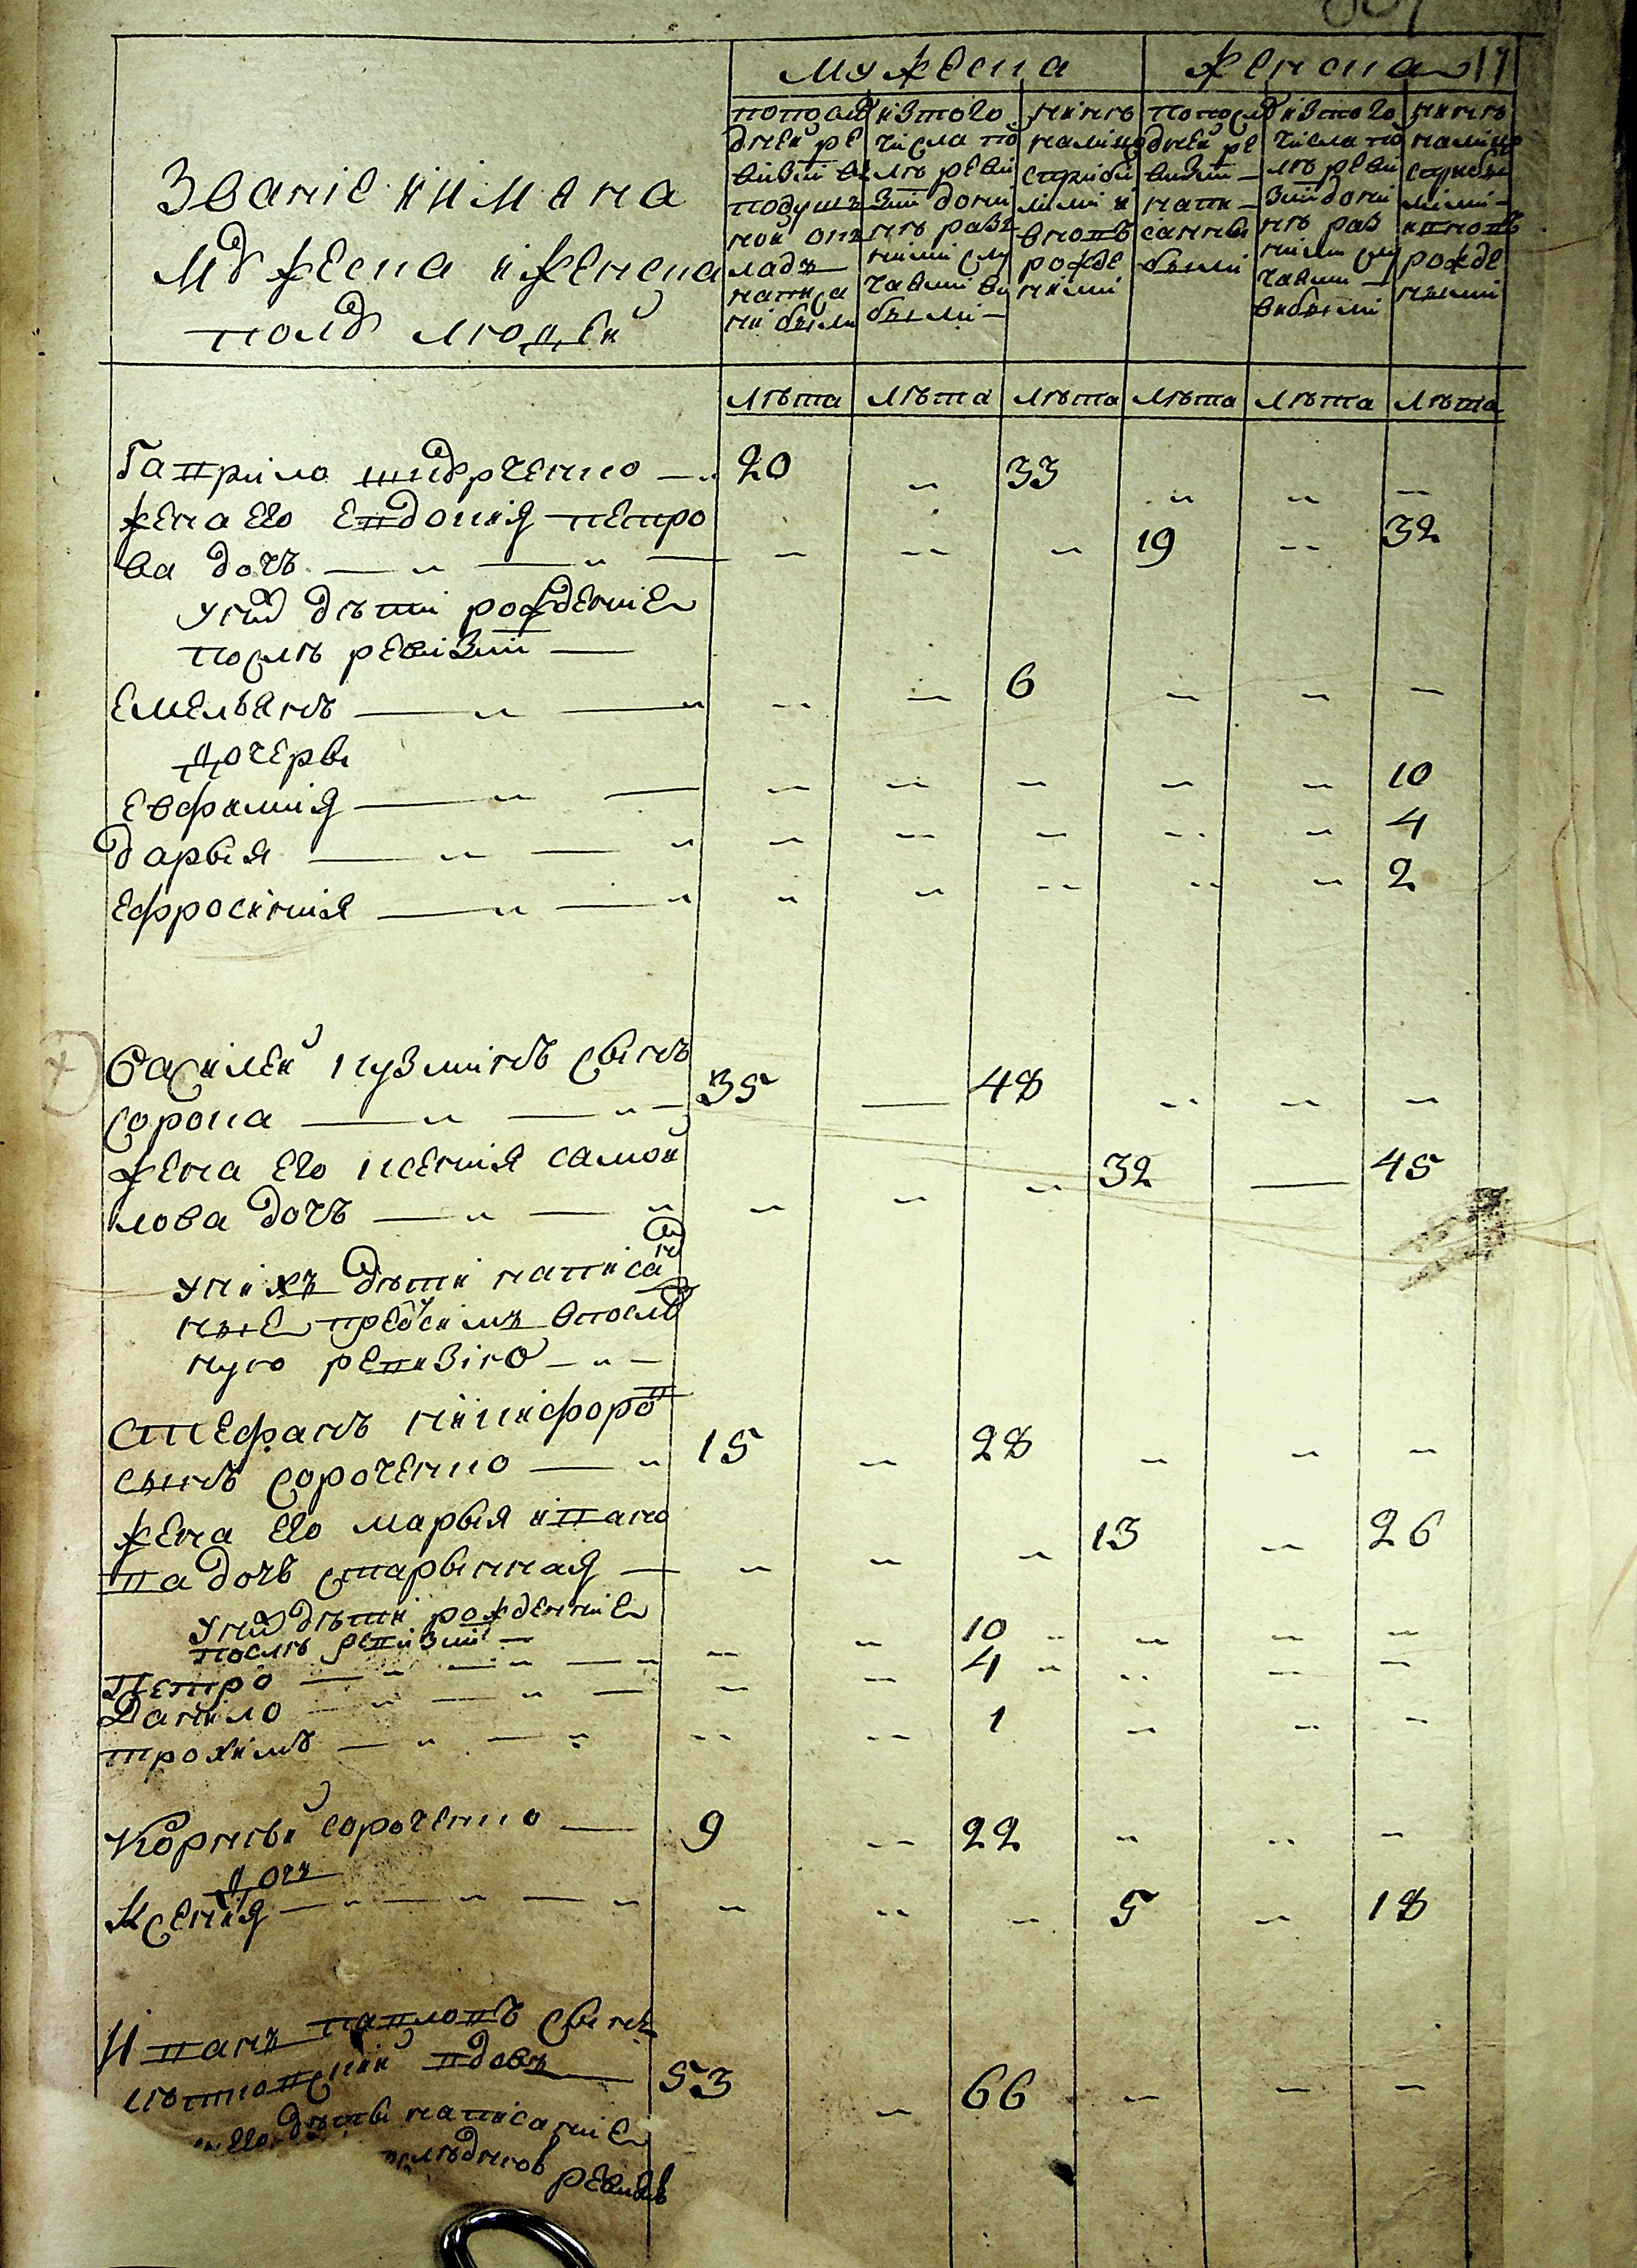 мужеска женска 17
Званіе и имена
мужеска и женска
полу людей
попослѣдней ревизіи въ подушной окладъ написани были
изтого числа послѣ ревизіи до нинѣ разними случаями выбыли
нинѣ налицо съприбилими и вновь рожденими
попослѣдней ревизіи написанны были
изтого числа послѣ ревизіи до нинѣ разними случаями выбыли
нинѣ налицо съприбилими и вновь рожденними
лѣта лѣта лѣта лѣта лѣта лѣта
Гаврило шкурченко — 20 „ 33 „ „ „
жена его Евдокия петро
ва дочь — „ — „ — „ „ „ 19 „ 32
у них дѣти рожденніе
послѣ ревизіи —
Емельянъ — „ — „ „ „ 6 „ „ „
Дочеры
Евфимія — „ — „ „ „ „ „ 10
дарыя — „ — „ „ „ „ „ „ 4
Ефросинія — „ — „ „ „ „ „ „ 2
Василей кузминъ сынъ
сорока — „ — „ — 35 — 48 „ „ „
жена его ксенія самой
лова дочь — „ — „ „ „ „ 32 — 45
у нихъ дѣти написан
ные
ную ревизію — „ —
Стефанъ никифоровъ
сынъ сороченко — „ 15 „ 28 „ „ „
жена его марыя ивано
ва дочь старынная — „ „ „ 13 „ 26
у них дѣти рожденніе
послѣ ревизіи —
Петро — „ — „ — „ „ „ 10 „ „ „
Данило — „ — „ — „ „ 4 „ „ „
трохимъ — „ — „ „ „ 1 „ „ „
Корнѣй сороченко — 9 „ 22 „ „ „
Дочь
Ксенія — „ — „ — „ „ „ „ 5 „ 18
Иванъ павловъ сынъ
квѣтковскій вдовъ — 53 „ 66 „ „ „
его дѣты написаніе
ревизіи